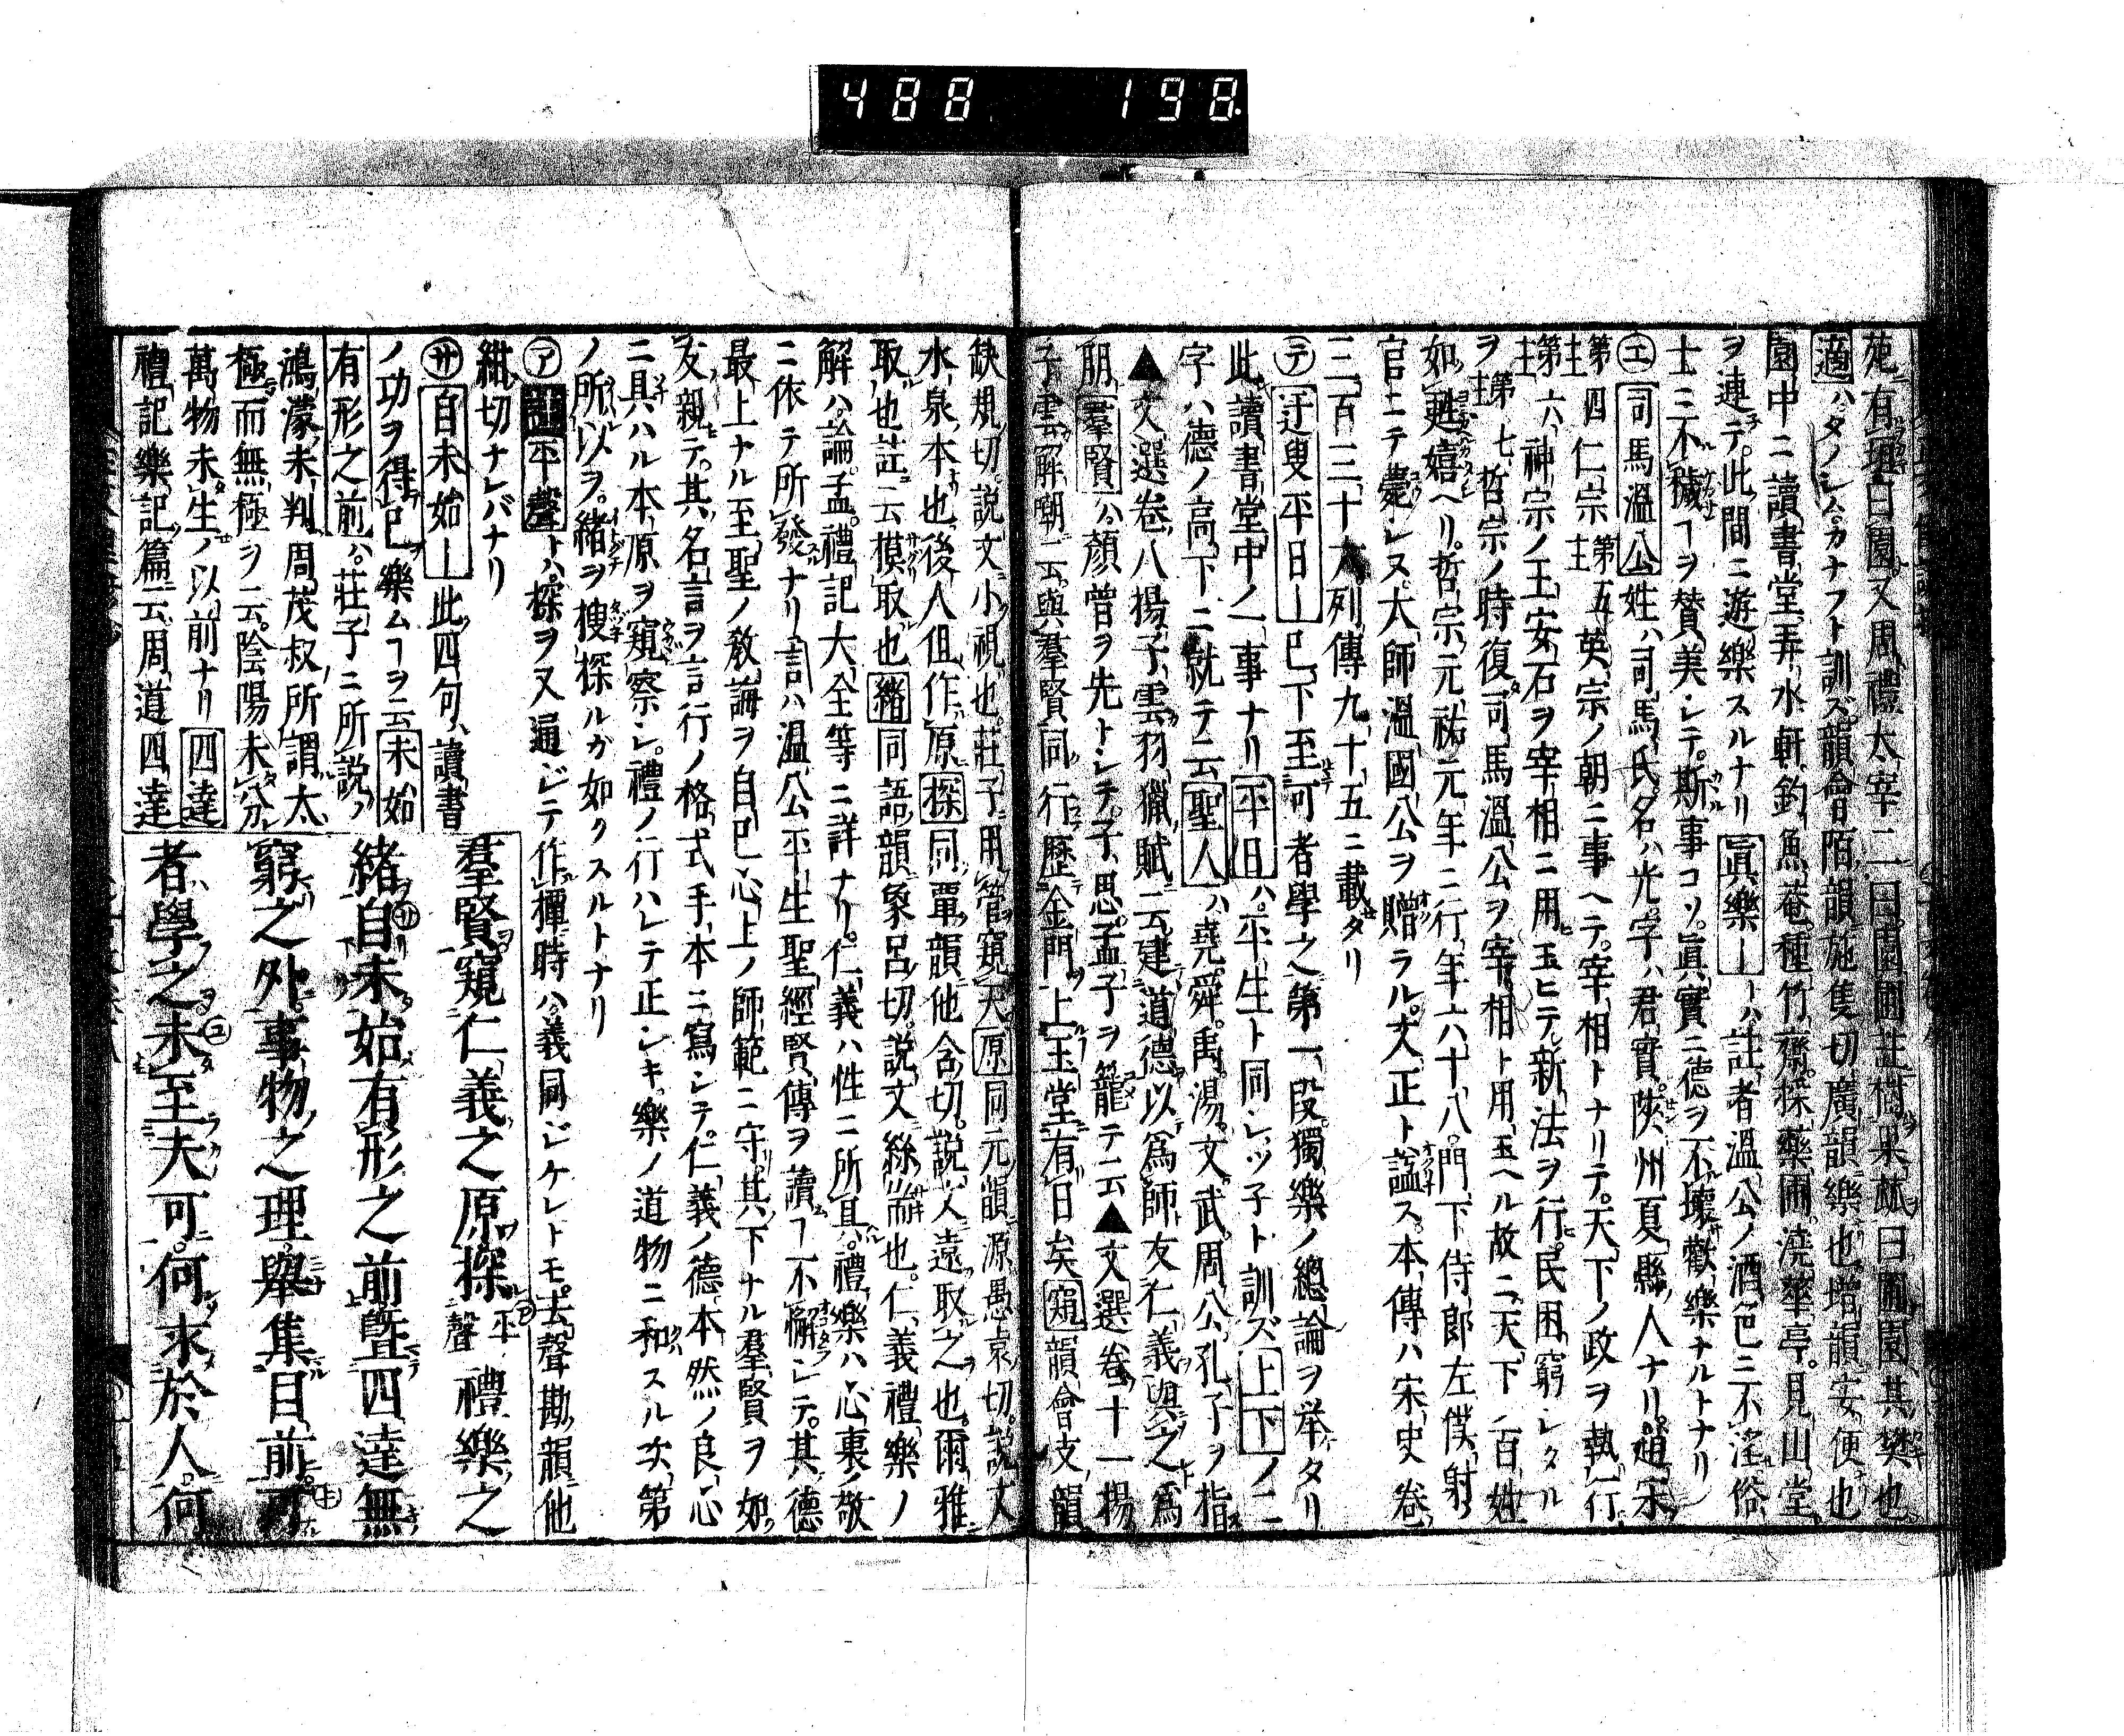 488 198
苑有垣曰園又周禮太宰二曰園圃註樹果蓏曰圃園其樊也
適ハタノシムカナフト訓ズ韻會陌韻施隻切廣韻樂也増韻安便也
園中ニ讀書堂弄水軒釣魚菴種竹齋採藥圃澆華亭見山堂
ヲ連テ此間ニ遊樂スルナリ眞樂ートハ註者溫公ノ酒色ニ不淫俗
士ニ不穢コヲ賛美シテ斯事コソ眞實ニ德ヲ不壞歡樂ナルトナリ
エ司馬溫公姓ハ司馬氏名ハ光字ハ君實陝州夏縣人ナリ趙宋
第四仁宗第五英宗ノ朝ニ事ヘテ宰相トナリテ天下ノ政ヲ執行
第六神宗ノ王安石ヲ宰相ニ用玉ヒテ新法ヲ行民困窮シタル
ヲ第七哲宗ノ時復司馬溫公ヲ宰相ト用玉ヘル故ニ天下ノ百姓
如甦嬉ヘリ哲宗元祐元年ニ行年六十八門下侍郎左僕射
官ニテ薨シヌ太師溫國公ヲ贈ラル文正ト諡ス本傳ハ宋史卷
三百三十六列傳九十五ニ載タリ
テ迂叟平日ー已下至可者學之第一段獨樂ノ總論ヲ挙タリ
此讀書堂中ノ一事ナリ平日ハ平生ト同シツ子ト訓ズ上下ノ二
字ハ德ノ高下ニ就テ云聖人ハ堯舜禹湯文武周公孔子ヲ指
▲文選卷八揚子雲羽獵賦云建道德以爲師友仁義與之爲
朋羣賢ハ顏曾ヲ先トシテ子思孟子ヲ籠テ云▲文選卷十一揚
子雲解嘲云與羣賢同行歷金門上玉堂有日矣窺韻會支韻
缺規切説文小視也莊子用管窺天原同元韻源愚袁切説文
水泉本也後人但作原探同覃韻他含切説文遠取之也爾雅
取也註云摸取也緒同語韻象呂切説文絲耑也仁義禮樂ノ
解ハ論孟禮記大全等ニ詳ナリ仁義ハ性ニ所具禮樂ハ心裏ノ敬
ニ依テ所發ナリ言ハ溫公平生聖經賢傳ヲ讀コ不懈シテ其德
最上ナル至聖ノ敎誨ヲ自己心上ノ師範ニ守其下ナル羣賢ヲ如
友親テ其名言ヲ言行ノ格式手本ニ寫シテ仁義ノ德本然ノ良心
ニ具ハル本原ヲ窺察シ禮ノ行ハレテ正シキ樂ノ道物ニ和スル次第
ノ所以ヲ緒ヲ捜探ルガ如クスルトナリ
ア註平聲トハ探ヲ又通ジテ作撢時ハ義同ジケレトモ去聲勘韻他
紺切ナレバナリ
サ自未始ー此四句讀書
ノ功ヲ得已樂ムコヲ云未始
有形之前ハ莊子ニ所説ノ
鴻濛未判周茂叔所謂太
極而無極ヲ云陰陽未分
萬物未生ノ以前ナリ四達
禮記樂記篇云周道四達
羣賢窺仁義之原探ア平聲禮樂之
緒サ自未始有形之前曁四達無
窮之外事物之理舉集目前キ可
者學之ユ未至夫可何求於人何